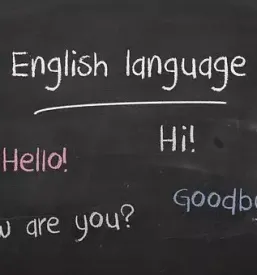 English language
Hi!
Hello!
Goodb
w are you?